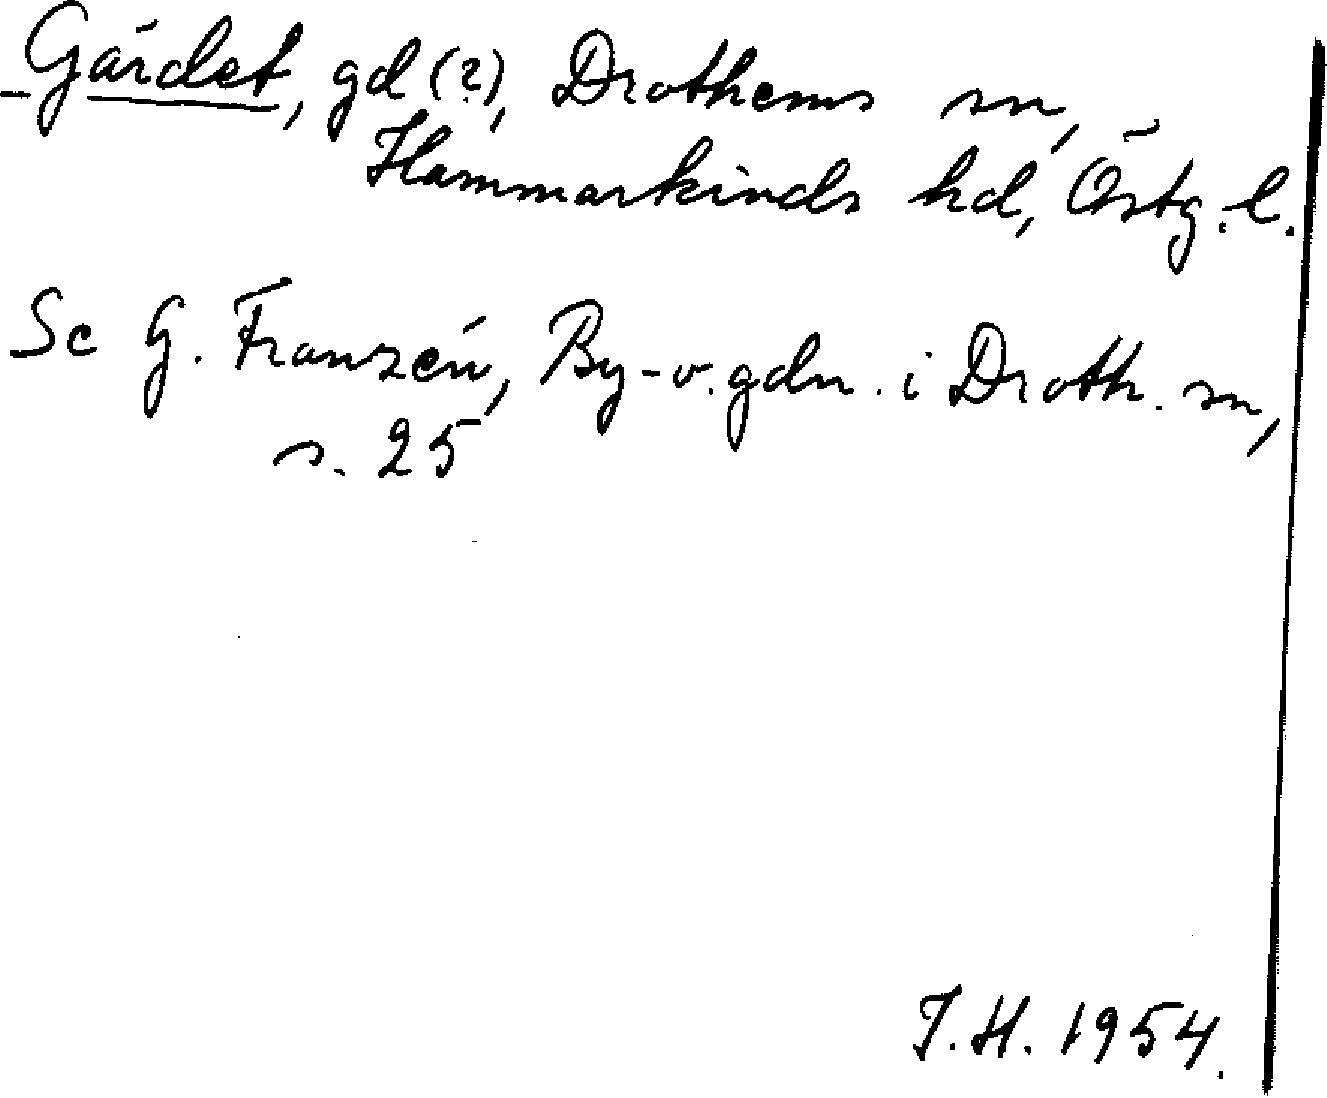 Gärdet, gd (?), Drothems sn,
Hammarkinds hd, Östg. l.
Se G. Franzén, By- o. gdn. i Droth. sn,
s. 25
J.H. 1954.